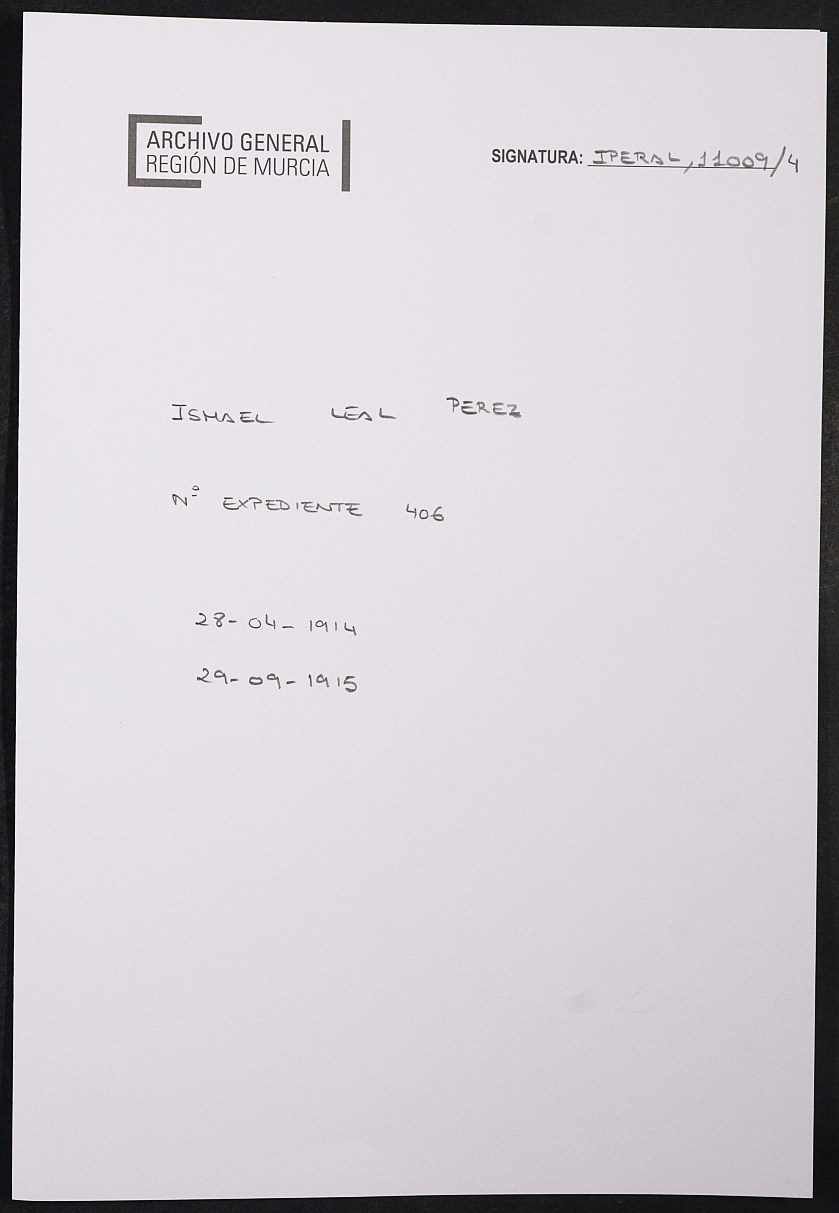 ARCHIVO GENERAL
REGIÓN DE MURCIA
SIGNATURA: IPERAL, 11009/4
ISMAEL LEAL PEREZ
Nº EXPEDIENTE 406
28-04-1914
29-09-1915